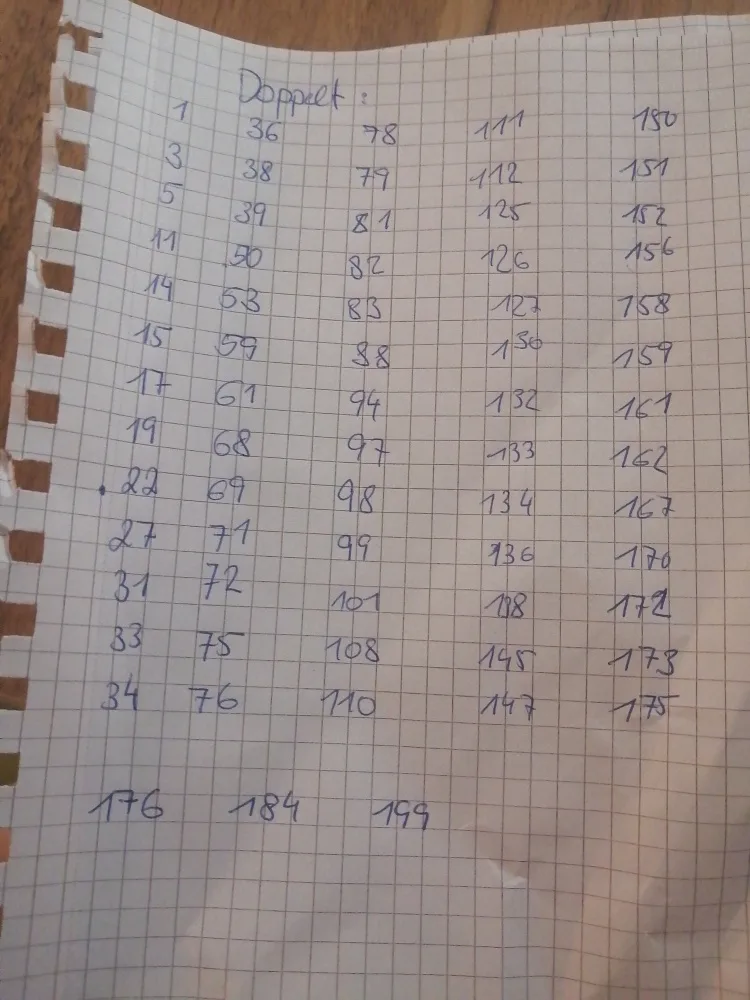 Doppelt :
1 36 78 111 150
3 38 79 112 151
5 39 81 125 152
11 50 82 126 156
14 53 83 127 158
15 59 88 130 159
17 61 94 132 161
19 68 97 133 162
22 69 98 134 167
27 71 99 136 170
31 72 101 172
33 75 108 145 173
34 76 110 147 175
176 184 199